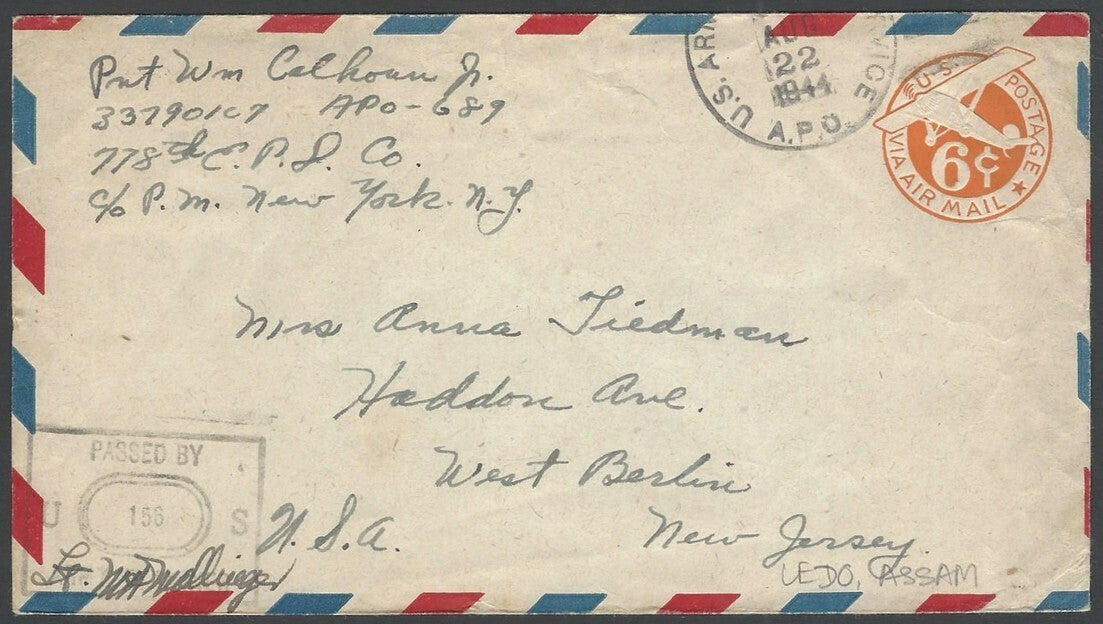 Pvt Wm Calhoun Jr.
33790167 APO-689
778th E. P. D. Co.
c/o P. M. New York. N. Y.
U.S. ARM VICE
AUG
22
1944
A.P.O.
U.S. POSTAGE
6¢
VIA AIR MAIL
Mrs Anna Tiedman
Haddon Ave.
West Berlin
New Jersey.
U. S. A.
PASSED BY
U 156 S
Lt.
LEDO, ASSAM